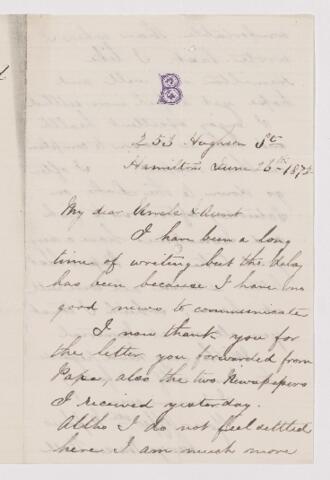 B
253 Hughson St
Hamilton June 26th 187
My dear Uncle & Aunt
I have been a long
time of writing but the delay
has been because I have no
good news to communicate
I now thank you for
the letter you forwarded from
Papa, also the two Newspapers
I received yesterday.
Altho I do not feel settled
here I am much more